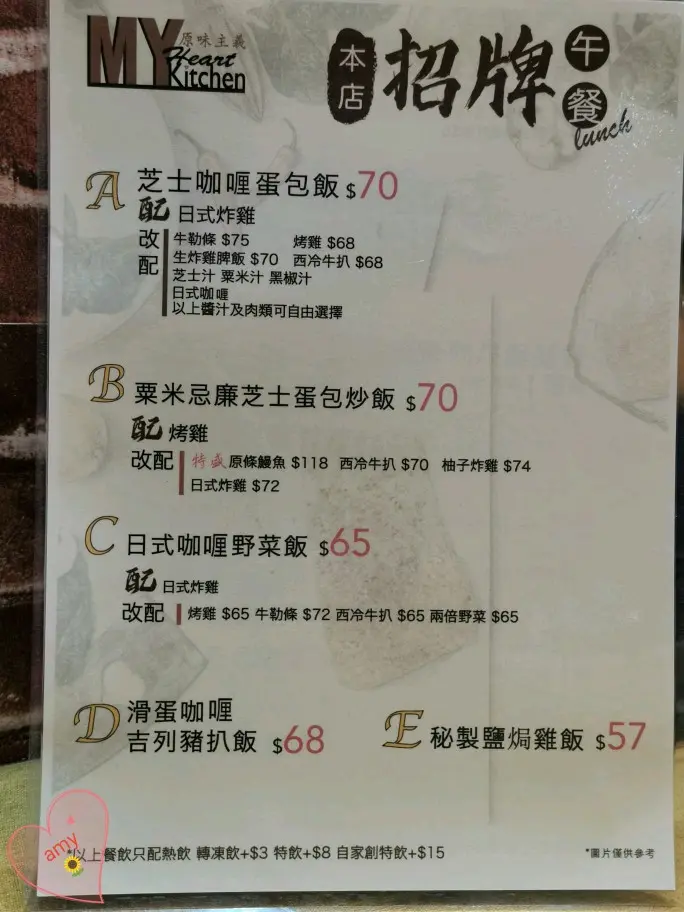 MY 原味主義
Heart
Kitchen
本店 招牌 午餐
lunch
A 芝士咖喱蛋包飯 $70
配 日式炸雞
改配 牛勒條 $75 烤雞 $68
生炸雞脾飯 $70 西冷牛扒 $68
芝士汁 粟米汁 黑椒汁
日式咖喱
以上醬汁及肉類可自由選擇
B 粟米忌廉芝士蛋包炒飯 $70
配 烤雞
改配 特盛 原條鰻魚 $118 西冷牛扒 $70 柚子炸雞 $74
日式炸雞 $72
C 日式咖喱野菜飯 $65
配 日式炸雞
改配 烤雞 $65 牛勒條 $72 西冷牛扒 $65 兩倍野菜 $65
D 滑蛋咖喱
吉列豬扒飯 $68
E 秘製鹽焗雞飯 $57
amy
*以上餐飲只配熱飲 轉凍飲+$3 特飲+$8 自家創特飲+$15
*圖片僅供參考